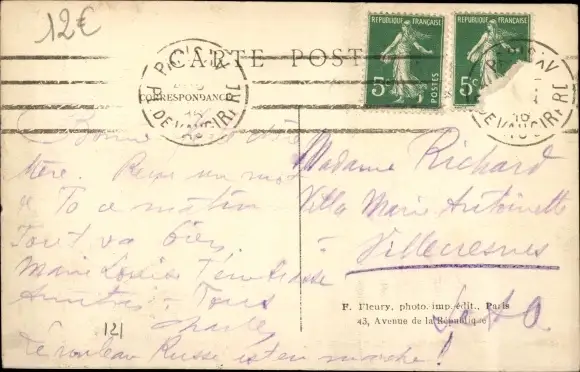 12€
CARTE POST
CORRESPONDANCE
REPUBLIQUE FRANÇAISE
5c
POSTES
REPUBLIQUE FRANÇAISE
5c
PARIS XV
R. DE VAUGIRARD
PARIS XV
DE VAUGIRARD
16
Bonne
Mère. Reçu un mot
de Toi ce matin
Tout va bien
Marie Louise t'embrasse
Amitiés à Tous
Charles
Le rouleau Russe est en marche!
121
Madame Richard
Villa Marie Antoinette
à
Villecresnes
S et O.
F. Fleury, photo. imp. édit., Paris
43, Avenue de la République